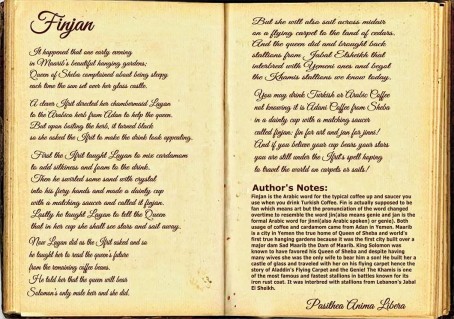 Finjan
It happened that one early evening
in Maarib's beautiful hanging gardens;
Queen of Sheba complained about being sleepy
each time the sun set over her glass castle.
A clever Ifrit directed her chambermaid Layan
to the Arabica herb from Adan to help the queen.
But upon boiling the herb, it turned black
so she asked the Ifrit to make the drink look appealing.
First the Ifrit taught Layan to mix cardamom
to add silkiness and foam to the drink.
Then he swirled some sand with crystal
into his fiery hands and made a dainty cup
with a matching saucer and called it finjan.
Lastly he taught Layan to tell the Queen
that in her cup she shall see stars and sail away.
Now Layan did as the Ifrit asked and so
he taught her to read the queen's future
from the remaining coffee beans.
He told her that the queen will bear
Solomon's only male heir and she did.
But she will also sail across midair
on a flying carpet to the land of cedars.
And the queen did and brought back
stallions from Jabal Elsheikh that
interbred with Yemeni ones and begot
the Khamis stallions we know today.
You may drink Turkish or Arabic Coffee
not knowing it is Adani Coffee from Sheba
in a dainty cup with a matching saucer
called finjan: fin for art and jan for jinns!
And if you believe your cup bears your stars
you are still under the Ifrit's spell hoping
to travel the world on carpets or sails!
Author's Notes:
Finjan is the Arabic word for the typical coffee up and saucer you
use when you drink Turkish Coffee. Fin is actually supposed to be
fan which means art but the pronounciation of the word changed
overtime to resemble the word jin(also means genie and jan is the
formal Arabic word for jinni(aka Arabic spoken) or genie). Both
usage of coffee and cardamom came from Adan in Yemen. Maarib
is a city in Yemen the true home of Queen of Sheba and world's
first true hanging gardens because it was the first city built over a
major dam Sad Maarib the Dam of Maarib. King Solomon was
known to have favored his Queen of Sheba and despite having
many wives she was the only wife to bear him a son! He built her a
castle of glass and traveled with her on his flying carpet hence the
story of Aladdin's Flying Carpet and the Genie! The Khamis is one
of the most famous and fastest stallions in battles known for its
iron rust coat. It was interbred with stallions from Lebanon's Jabal
El Sheikh.
Pasithea Anima Libera